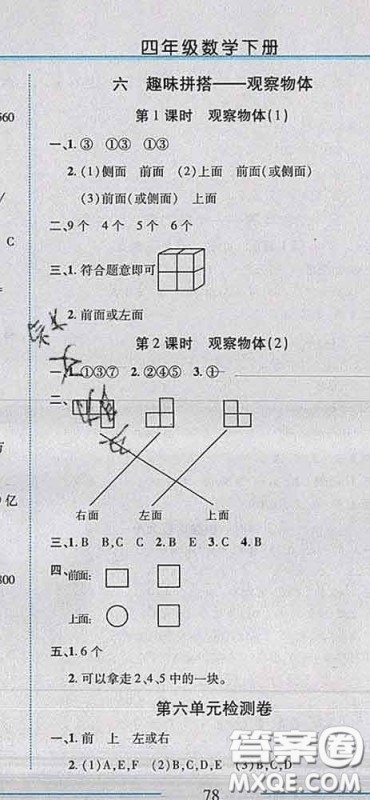 四年级数学下册
560
六 趣味拼搭——观察物体
第1课时 观察物体(1)
一、1.③ ①③ ①③
2.(1)侧面 前面 (2)上面 前面(或侧面)
(3)前面(或侧面) 上面
二、9个 4个 5个 6个
C
三、1.符合题意即可
2.前面或左面
第2课时 观察物体(2)
一、1.①③⑦ 2.②④⑤ 3.①
二、
万
右面 左面 上面
亿
三、1.B B,C C 2.B E 3.C 4.B
四、前面:
上面:
800
五、1.6个
2.可以拿走2,4,5中的一块。
第六单元检测卷
一、1.前 上 左或右
2.(1)A,E,F (2)B,D,E (3)B,C,D
78
答案圈
MXQE.COM